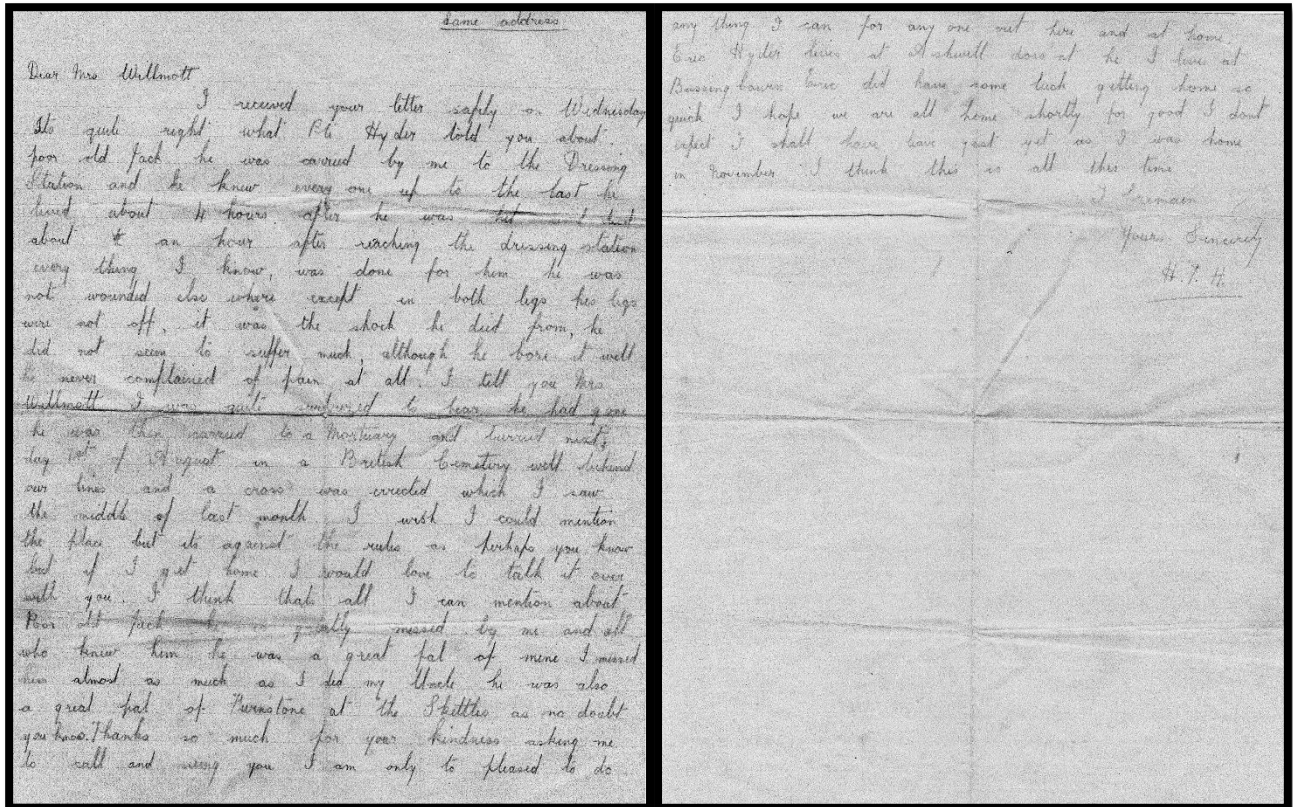 Same address
Dear Mrs Willmott
I received your letter safely on Wednesday
Its quite right what Pte Hyder told you about
poor old Jack he was carried by me to the Dressing
Station and he knew every one up to the last he
lived about 4 hours after he was hit and died
about an hour after reaching the dressing station
every thing I know, was done for him he was
not wounded else where except in both legs his legs
were not off, it was the shock he died from, he
did not seem to suffer much, although he bore it well
he never complained of pain at all. I tell you Mrs
Willmott I was quite to hear he had gone
he was then carried to a Mortuary and burried next
day 1st of August in a British Cemetery well behind
our lines and a cross was errected which I saw
the middle of last month I wish I could mention
the place but its against the rules as perhaps you know
but if I get home I would love to talk it over
with you. I think thats all I can mention about
Poor old Jack he is greatly missed by me and all
who knew him he was a great pal of mine I missed
him almost as much as I did my Uncle he was also
a great pal of at the Skittles as no doubt
you know. Thanks so much for your kindness asking me
to call and seeing you I am only to pleased to do
any thing I can for any one out here and at home
Eric Hyder lives at Ashwell dosn at he I live at
Bassingbourn Eric did have some luck getting home so
quick I hope we are all home shortly for good I dont
expect I shall have leave just yet as I was home
in November. I think this is all this time
I remain
Yours Sincerely
H. T. H.